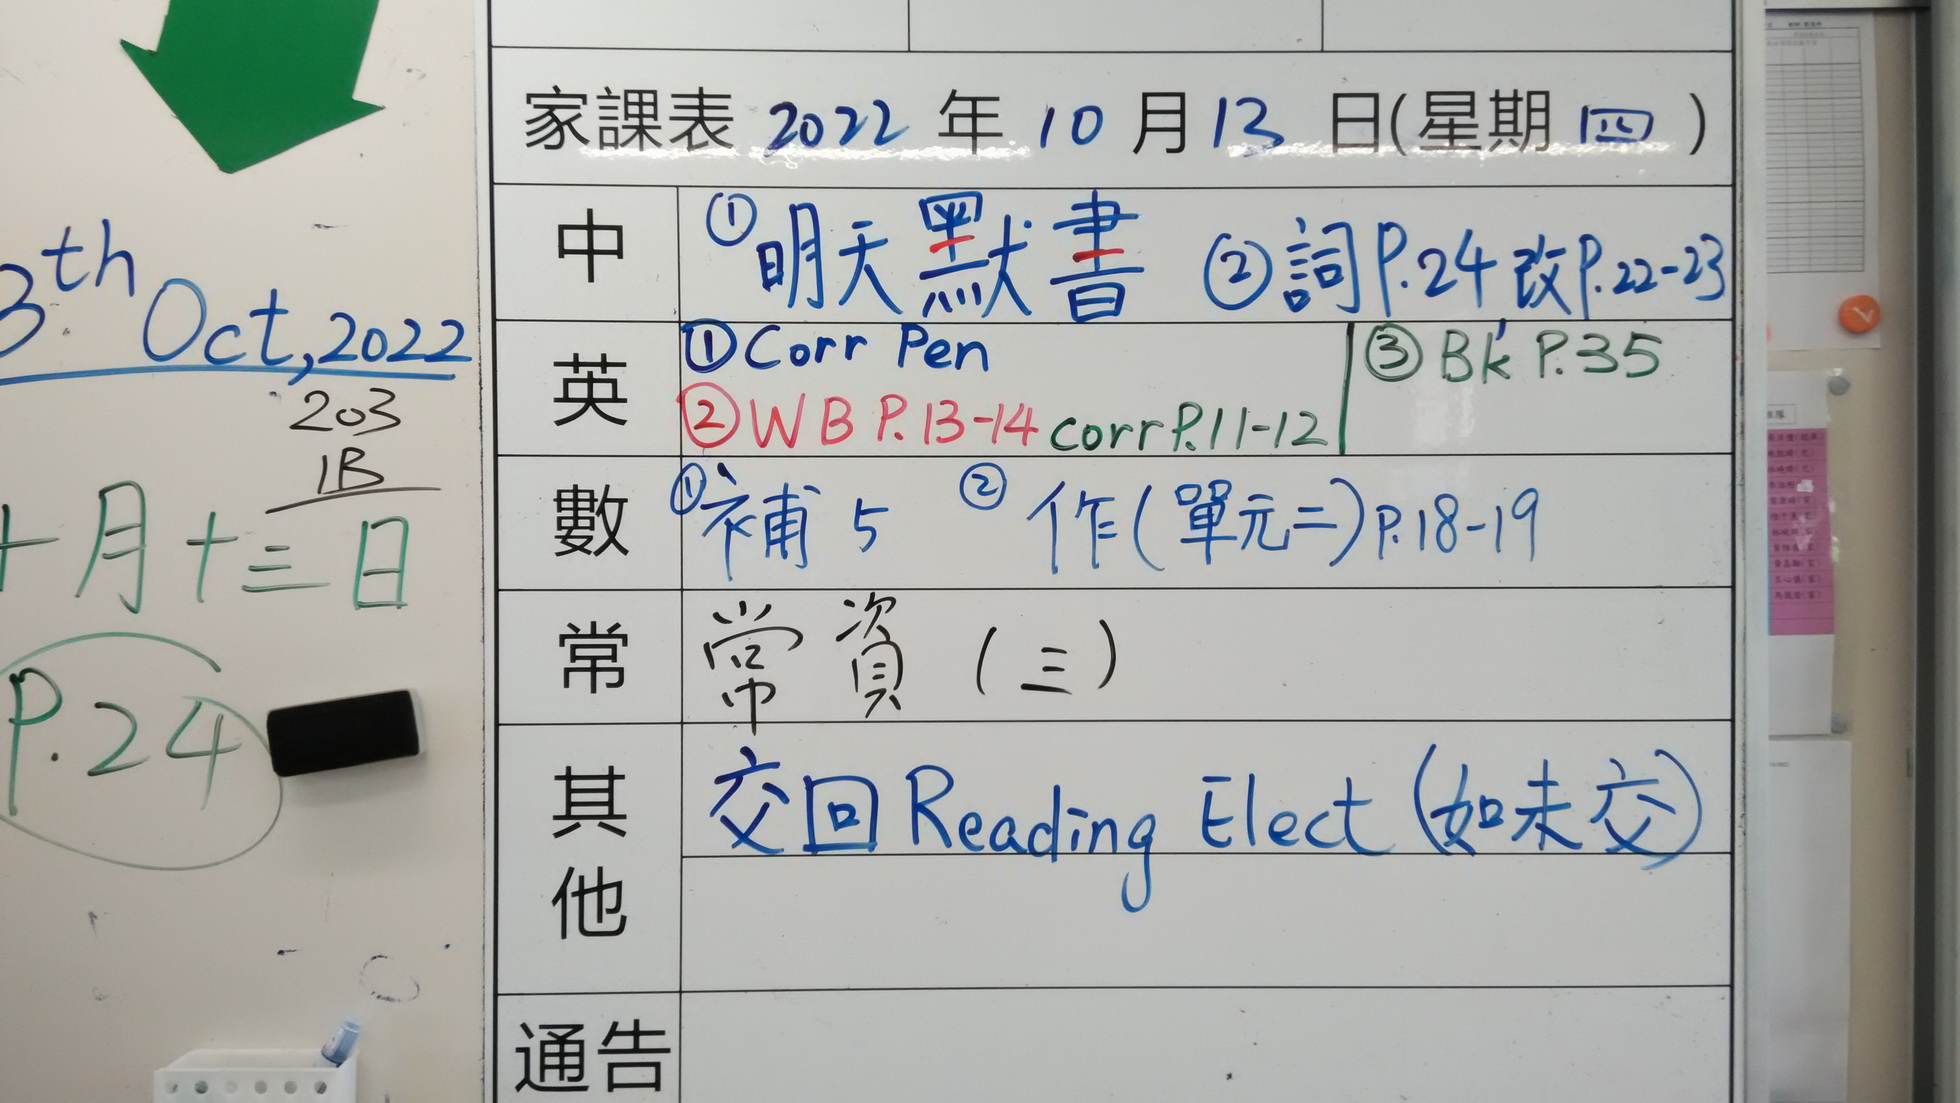 3th Oct, 2022
203
1B
十月十三日
P.24
家課表 2022 年 10 月 13 日(星期 四 )
中 ①明天默書 ②詞P.24 改P.22-23
英 ①Corr Pen ③Bk P.35
②WB P.13-14 corr P.11-12
數 ①補 5 ② 作(單元二)P.18-19
常 常資 (三)
其他 交回 Reading Elect (如未交)
通告